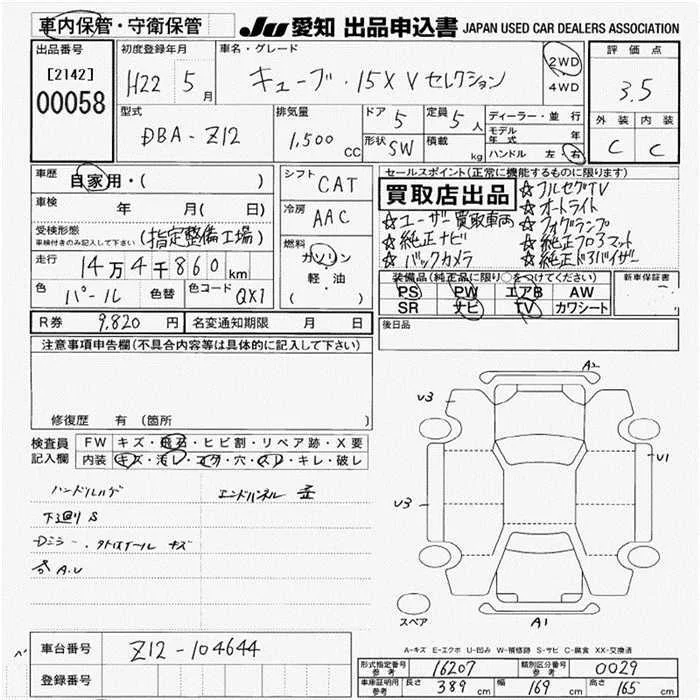 車内保管・守衛保管
JU 愛知 出品申込書 JAPAN USED CAR DEALERS ASSOCIATION
出品番号
[2142]
00058
初度登録年月
H22 5月
車名・グレード
キューブ・15X V セレクション
2WD
4WD
評価点
3.5
外装 内装
C C
型式
DBA-Z12
排気量
1,500 cc
ドア 5
形状 SW
定員 5人
積載 kg
ディーラー・並行
モデル年式 年
ハンドル 左・右
車歴 自家用・( )
車検 年 月( 日)
受検形態 (指定整備工場)
車検付きのみ記入して下さい
走行 14万4千860km
色 パール 色替 色コード QX1
シフト CAT
冷房 AAC
燃料
ガソリン
軽・油
( )
セールスポイント(正常に機能するものに限ります)
買取店出品
☆フルセグTV
☆オートライト
☆ユーザー買取車両 ☆フォグランプ
☆純正ナビ ☆純正フロアマット
☆バックカメラ ☆純正ドアバイザー
装備品(純正品に限り○をつけてください)
PS PW エアB AW
SR ナビ TV カワシート
新車保証書
後日品
R券 9,820円 名変通知期限 月 日
注意事項申告欄(不具合内容等は具体的に記入して下さい)
修復歴 有 (箇所 )
検査員記入欄
FW キズ・飛石・ヒビ割・リペア跡・X要
内装 キズ・汚レ・コゲ・穴・スレ・キレ・破レ
ハンドルハゲ エンドパネル 歪
下廻り S
Dミラー・タイヤホイール キズ
各 A.U
A2
U3
U1
U3
A1
スペア
A-キズ E-エクボ U-凹み W-補修跡 S-サビ C-腐食 XX-交換済
車台番号 Z12-104644
登録番号
形式指定番号 参考 16207 類別区分番号 参考 0029
車庫証明用 参考 長さ 389 cm 幅 169 cm 高さ 165 cm